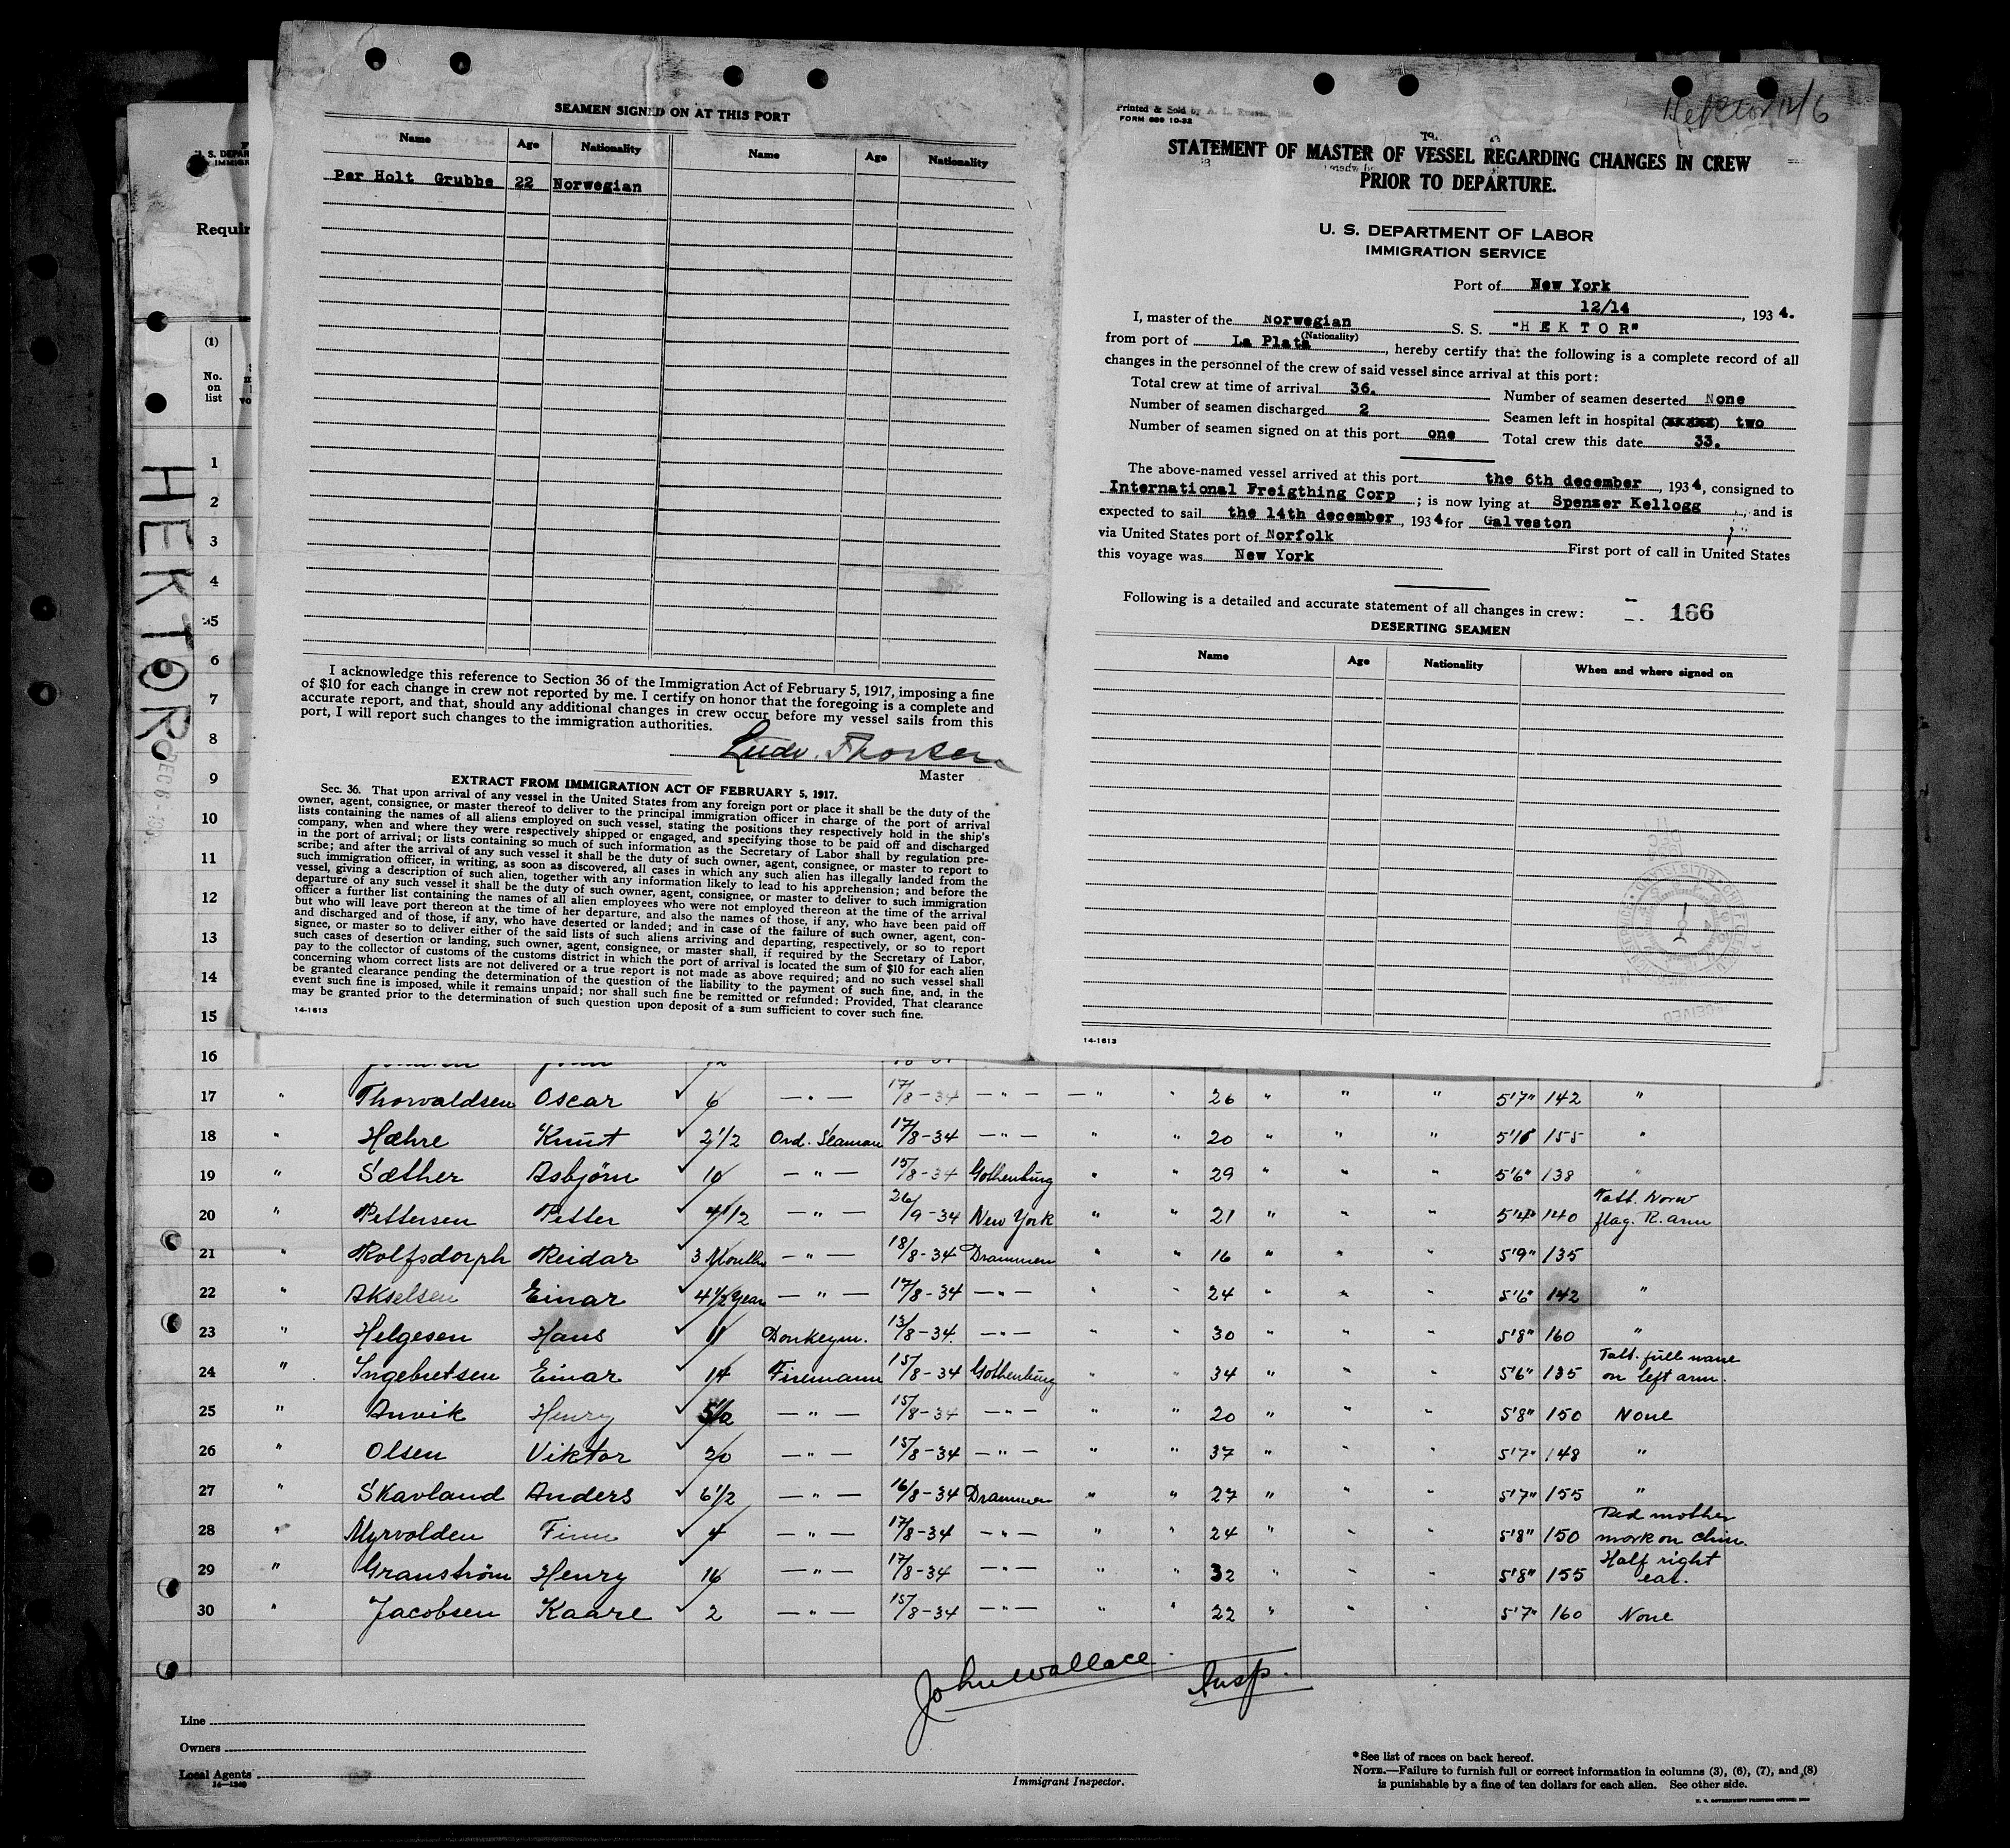 SEAMEN SIGNED ON AT THIS PORT
Name Age Nationality Name Age Nationality
Per Holt Grubbe 22 Norwegian
I acknowledge this reference to Section 36 of the Immigration Act of February 5, 1917, imposing a fine
of $10 for each change in crew not reported by me. I certify on honor that the foregoing is a complete and
accurate report, and that, should any additional changes in crew occur before my vessel sails from this
port, I will report such changes to the immigration authorities.
Ludv. Thorsen
Master
EXTRACT FROM IMMIGRATION ACT OF FEBRUARY 5, 1917.
Sec. 36. That upon arrival of any vessel in the United States from any foreign port or place it shall be the duty of the
owner, agent, consignee, or master thereof to deliver to the principal immigration officer in charge of the port of arrival
lists containing the names of all aliens employed on such vessel, stating the positions they respectively hold in the ship's
company, when and where they were respectively shipped or engaged, and specifying those to be paid off and discharged
in the port of arrival; or lists containing so much of such information as the Secretary of Labor shall by regulation pre-
scribe; and after the arrival of any such vessel it shall be the duty of such owner, agent, consignee, or master to report to
such immigration officer, in writing, as soon as discovered, all cases in which any such alien has illegally landed from the
vessel, giving a description of such alien, together with any information likely to lead to his apprehension; and before the
departure of any such vessel it shall be the duty of such owner, agent, consignee, or master to deliver to such immigration
officer a further list containing the names of all alien employees who were not employed thereon at the time of the arrival
but who will leave port thereon at the time of her departure, and also the names of those, if any, who have been paid off
and discharged and of those, if any, who have deserted or landed; and in case of the failure of such owner, agent, con-
signee, or master so to deliver either of the said lists of such aliens arriving and departing, respectively, or so to report
such cases of desertion or landing, such owner, agent, consignee, or master shall, if required by the Secretary of Labor,
pay to the collector of customs of the customs district in which the port of arrival is located the sum of $10 for each alien
concerning whom correct lists are not delivered or a true report is not made as above required; and no such vessel shall
be granted clearance pending the determination of the question of the liability to the payment of such fine, and, in the
event such fine is imposed, while it remains unpaid; nor shall such fine be remitted or refunded: Provided, That clearance
may be granted prior to the determination of such question upon deposit of a sum sufficient to cover such fine.
14-1613
Hektor 12/6
Printed & Sold by A. L.
FORM 689 10-32
STATEMENT OF MASTER OF VESSEL REGARDING CHANGES IN CREW
PRIOR TO DEPARTURE.
U. S. DEPARTMENT OF LABOR
IMMIGRATION SERVICE
Port of New York
12/14, 1934.
I, master of the Norwegian S. S. "HEKTOR"
(Nationality)
from port of La Plata, hereby certify that the following is a complete record of all
changes in the personnel of the crew of said vessel since arrival at this port:
Total crew at time of arrival 36. Number of seamen deserted None
Number of seamen discharged 2 Seamen left in hospital (xxxxx) two
Number of seamen signed on at this port one Total crew this date 33.
The above-named vessel arrived at this port the 6th december, 1934, consigned to
International Freigthing Corp; is now lying at Spenzer Kellogg, and is
expected to sail the 14th december, 1934 for Galveston
via United States port of Norfolk First port of call in United States
this voyage was New York
Following is a detailed and accurate statement of all changes in crew: 166
DESERTING SEAMEN
Name Age Nationality When and where signed on
14-1613
U. S. DEPAR
IMMIGR
Requir
(1)
No.
on
list
HEKTOR
DEC 6
1
2
3
4
5
6
7
8
9
10
11
12
13
14
15
16
17 " Thorvaldsen Oscar ✓ 6 — " — 17/8-34 — " — — " " 26 " " " 5'7" 142 "
18 " Hæhre Knut ✓ 2 1/2 Ord. Seaman 17/8-34 — " — " " 20 " " " 155 "
19 " Sæther Asbjørn ✓ 10 — " — 15/8-34 Gothenburg " " 29 " " " 5'6" 138 "
20 " Pettersen Petter ✓ 4 1/2 — " — 26/9-34 New York " " 21 " " " 5'4" 140 Tatt. Norw flag. R. arm
21 " Rolfsdorph Reidar ✓ 3 Months — " — 18/8-34 Drammen " " 16 " " " 5'9" 135
22 " Akselsen Einar ✓ 4 1/2 Year — " — 17/8-34 — " — " " 24 " " " 5'6" 142 "
23 " Helgesen Hans ✓ 11 Donkeym. 13/8-34. — " — " " 30 " " " 5'8" 160 "
24 " Ingebretsen Einar ✓ 14 Firemann 15/8-34 Gothenburg " " 34 " " " 5'6" 135 Tatt. full name on left arm.
25 " Anvik Henry ✓ 5 1/2 — " — 15/8-34 — " — " " 20 " " " 5'8" 150 None
26 " Olsen Viktor ✓ 20 — " — 15/8-34 — " — " " 37 " " " 5'7" 148 "
27 " Skavland Anders ✓ 6 1/2 — " — 16/8-34 Drammen " " 27 " " " 5'7" 155 "
28 " Myrvolden Finn ✓ 4 — " — 17/8-34 — " — " " 24 " " " 5'8" 150 Red mother mark on Chin.
29 " Granstrøm Henry ✓ 16 — " — 17/8-34 — " — " " 32 " " " 5'8" 155 Half right ear.
30 " Jacobsen Kaare ✓ 2 — " — 15/8-34 — " — " " 22 " " " 5'7" 160 None
John Wallace Insp.
Line
Owners
Local Agents
14-1240
Immigrant Inspector.
*See list of races on back hereof.
NOTE.—Failure to furnish full or correct information in columns (3), (6), (7), and (8)
is punishable by a fine of ten dollars for each alien. See other side.
U. S. GOVERNMENT PRINTING OFFICE